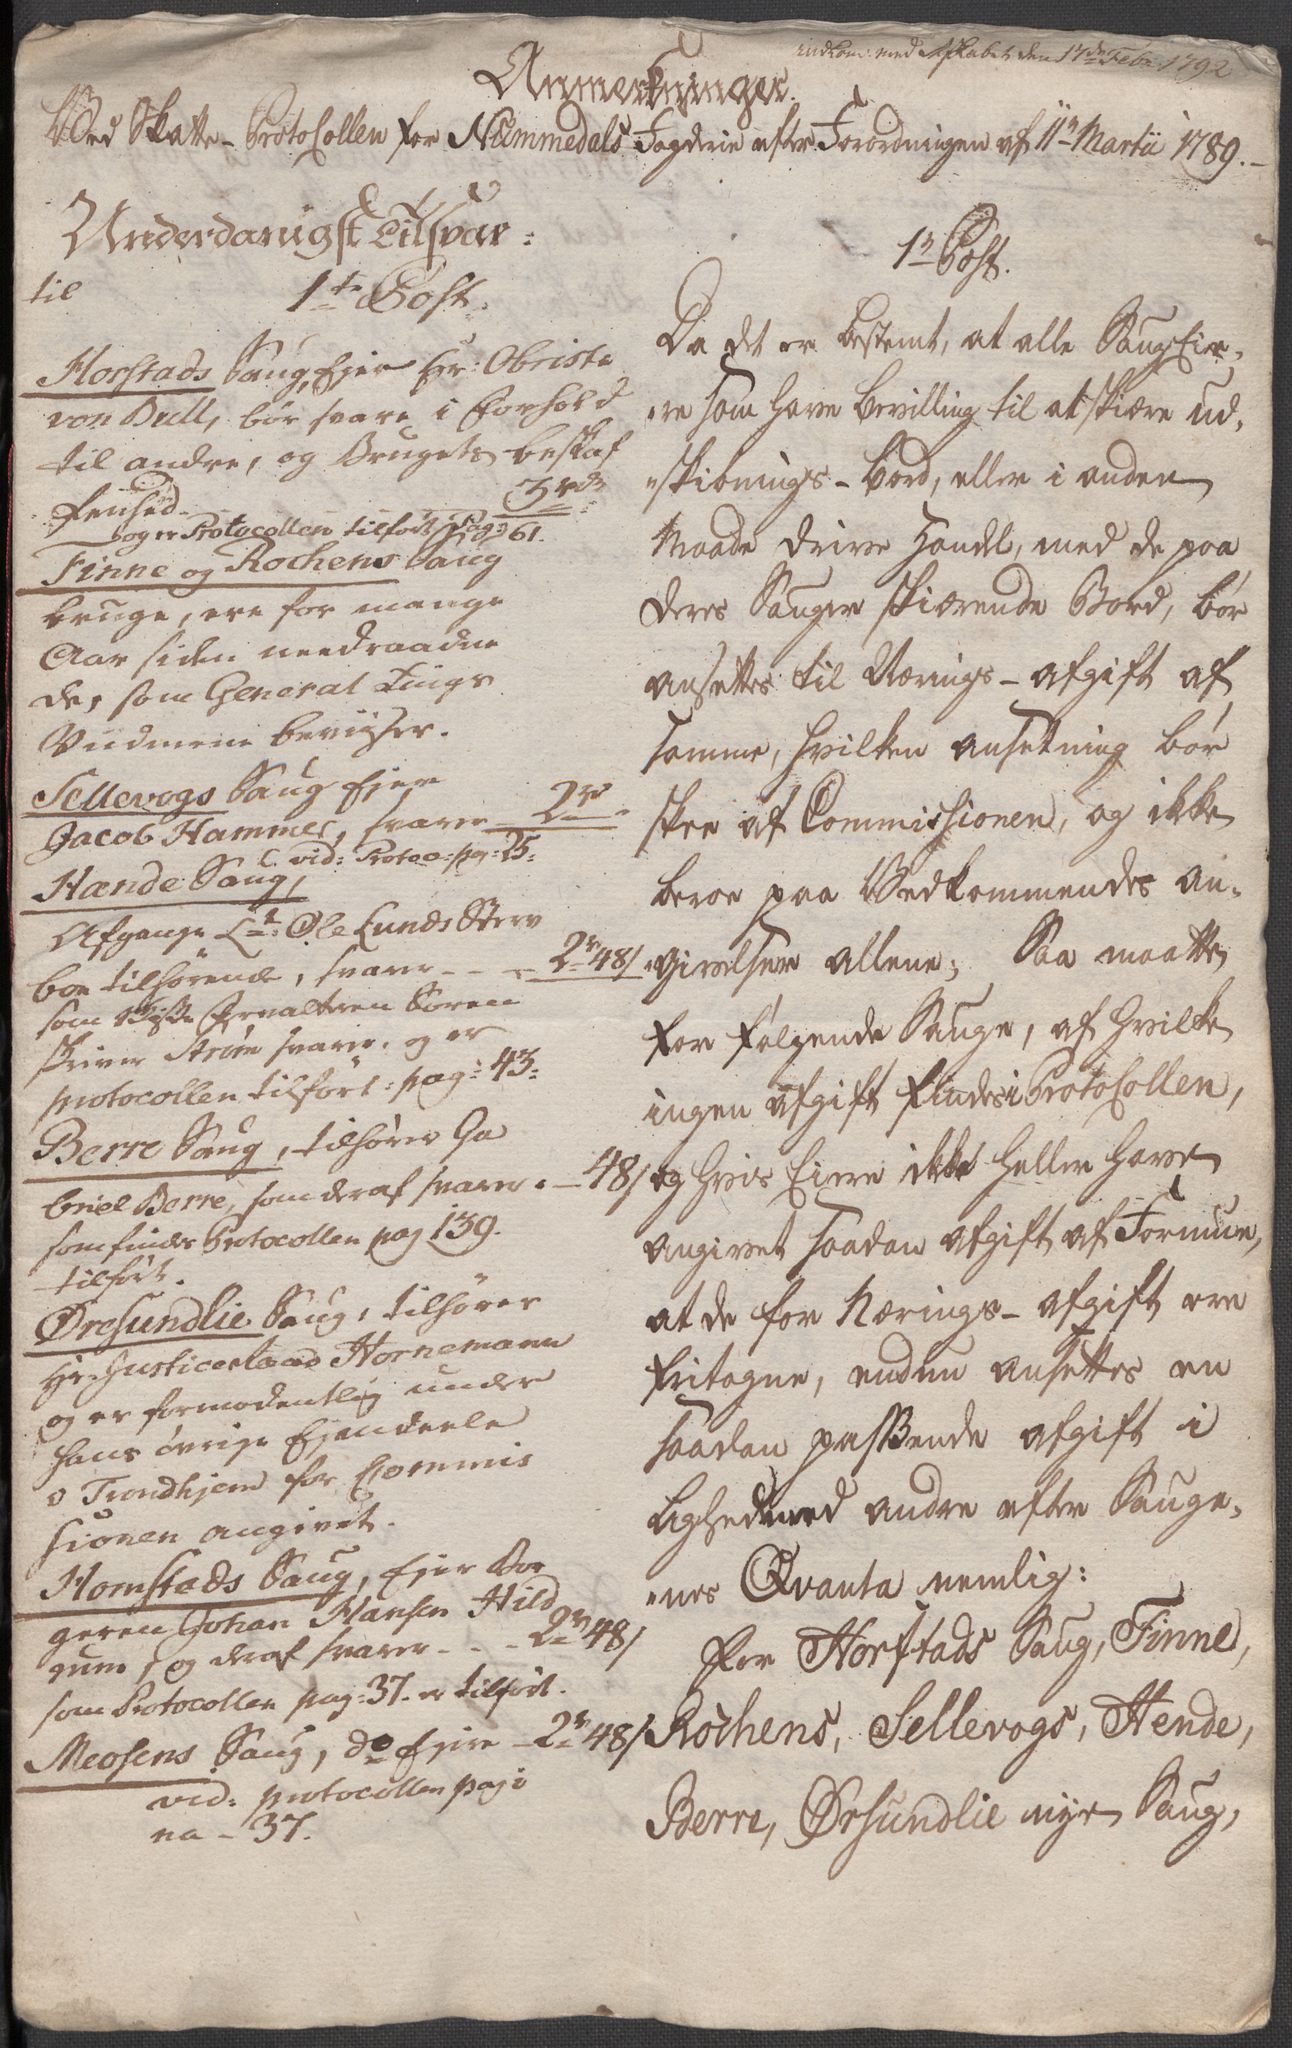 indkom: med Afskabet den 17de Febr 1792
Anmerkninger.
Ved Skatte-Protocollen for Nummedals Fogderie efter Forordningen af 11te Martii 1789.-
Underdanigst Tilsvar:
til 1te Post.
Horstads Saug, Ejer Hr: Obriste
von Bull, bör svare i Forhold
til andre, og Brugets beskaf
fenhed 3rd
og er Protocollen tilført Pag: 61.
Finne og Rochens Saug
bruge, ere for mange
Aar siden needraadne
de, som General Tings
Vidnerne beviiser.
Sellevogs Saug Ejer
Jacob Hammer, svarer 2rd
vid: Protoc: pag: 25:
Hænde Saug,
Afgangne Lt: Ole Lunds Sterv
boe tilhörende, svarer - - - 2r 48/
som Forvalteren Soren
skriver Ström svarer. og er
protocollen tilfört: pag: 43:
Berre Saug, tilhörer Ga
briel Berre, som deraf svarer. - 48/
som findes Protocollen pag 139.
tilført.
Øresundlie Saug, tilhörer
Hr. Justiceraad Hornemann
og er formodentlig under
hans övrige Ejendeele
i Trondhjem for Commis
sionen angivet.
Homstads Saug, Ejer Bor
geren Johan Hansen Hild
gum, og deraf svarer - - - 2r 48/
som Protocollen pag: 37. er tilfört.
Meosens Saug, do Ejere - 2r 48/
vid: protocollen pagi
na - 37.
1te Post.
Da det er bestemt, at alle Saug Eie,
"re som have Bevilling til at skiære ud,
"skibnings-Bord, eller i anden
Maade drive Handel, med de paa
deres Sauger skiærende Bord, bör
ansettes til Nærings-afgift af
samme, hvilken ansetning bör
skee af Commissionen, og ikke
beroe paa Vedkommendes an,
"givelser allene; Saa maatte
for fölgende Sauge, af hvilke
ingen afgift findes i Protocollen,
og hvis Eiere ikke heller have
angivet saadan afgift af Formue,
at de for Nærings-afgift ere
fritagne, endnu ansettes en
saadan passende afgift i
Lighed med andre efter Sauge,
"nes Qvanta nemlig:
For Horstads Saug, Finne,
Rochens, Sellevogs, Hende,
Berre, Øresundlie nye Saug,